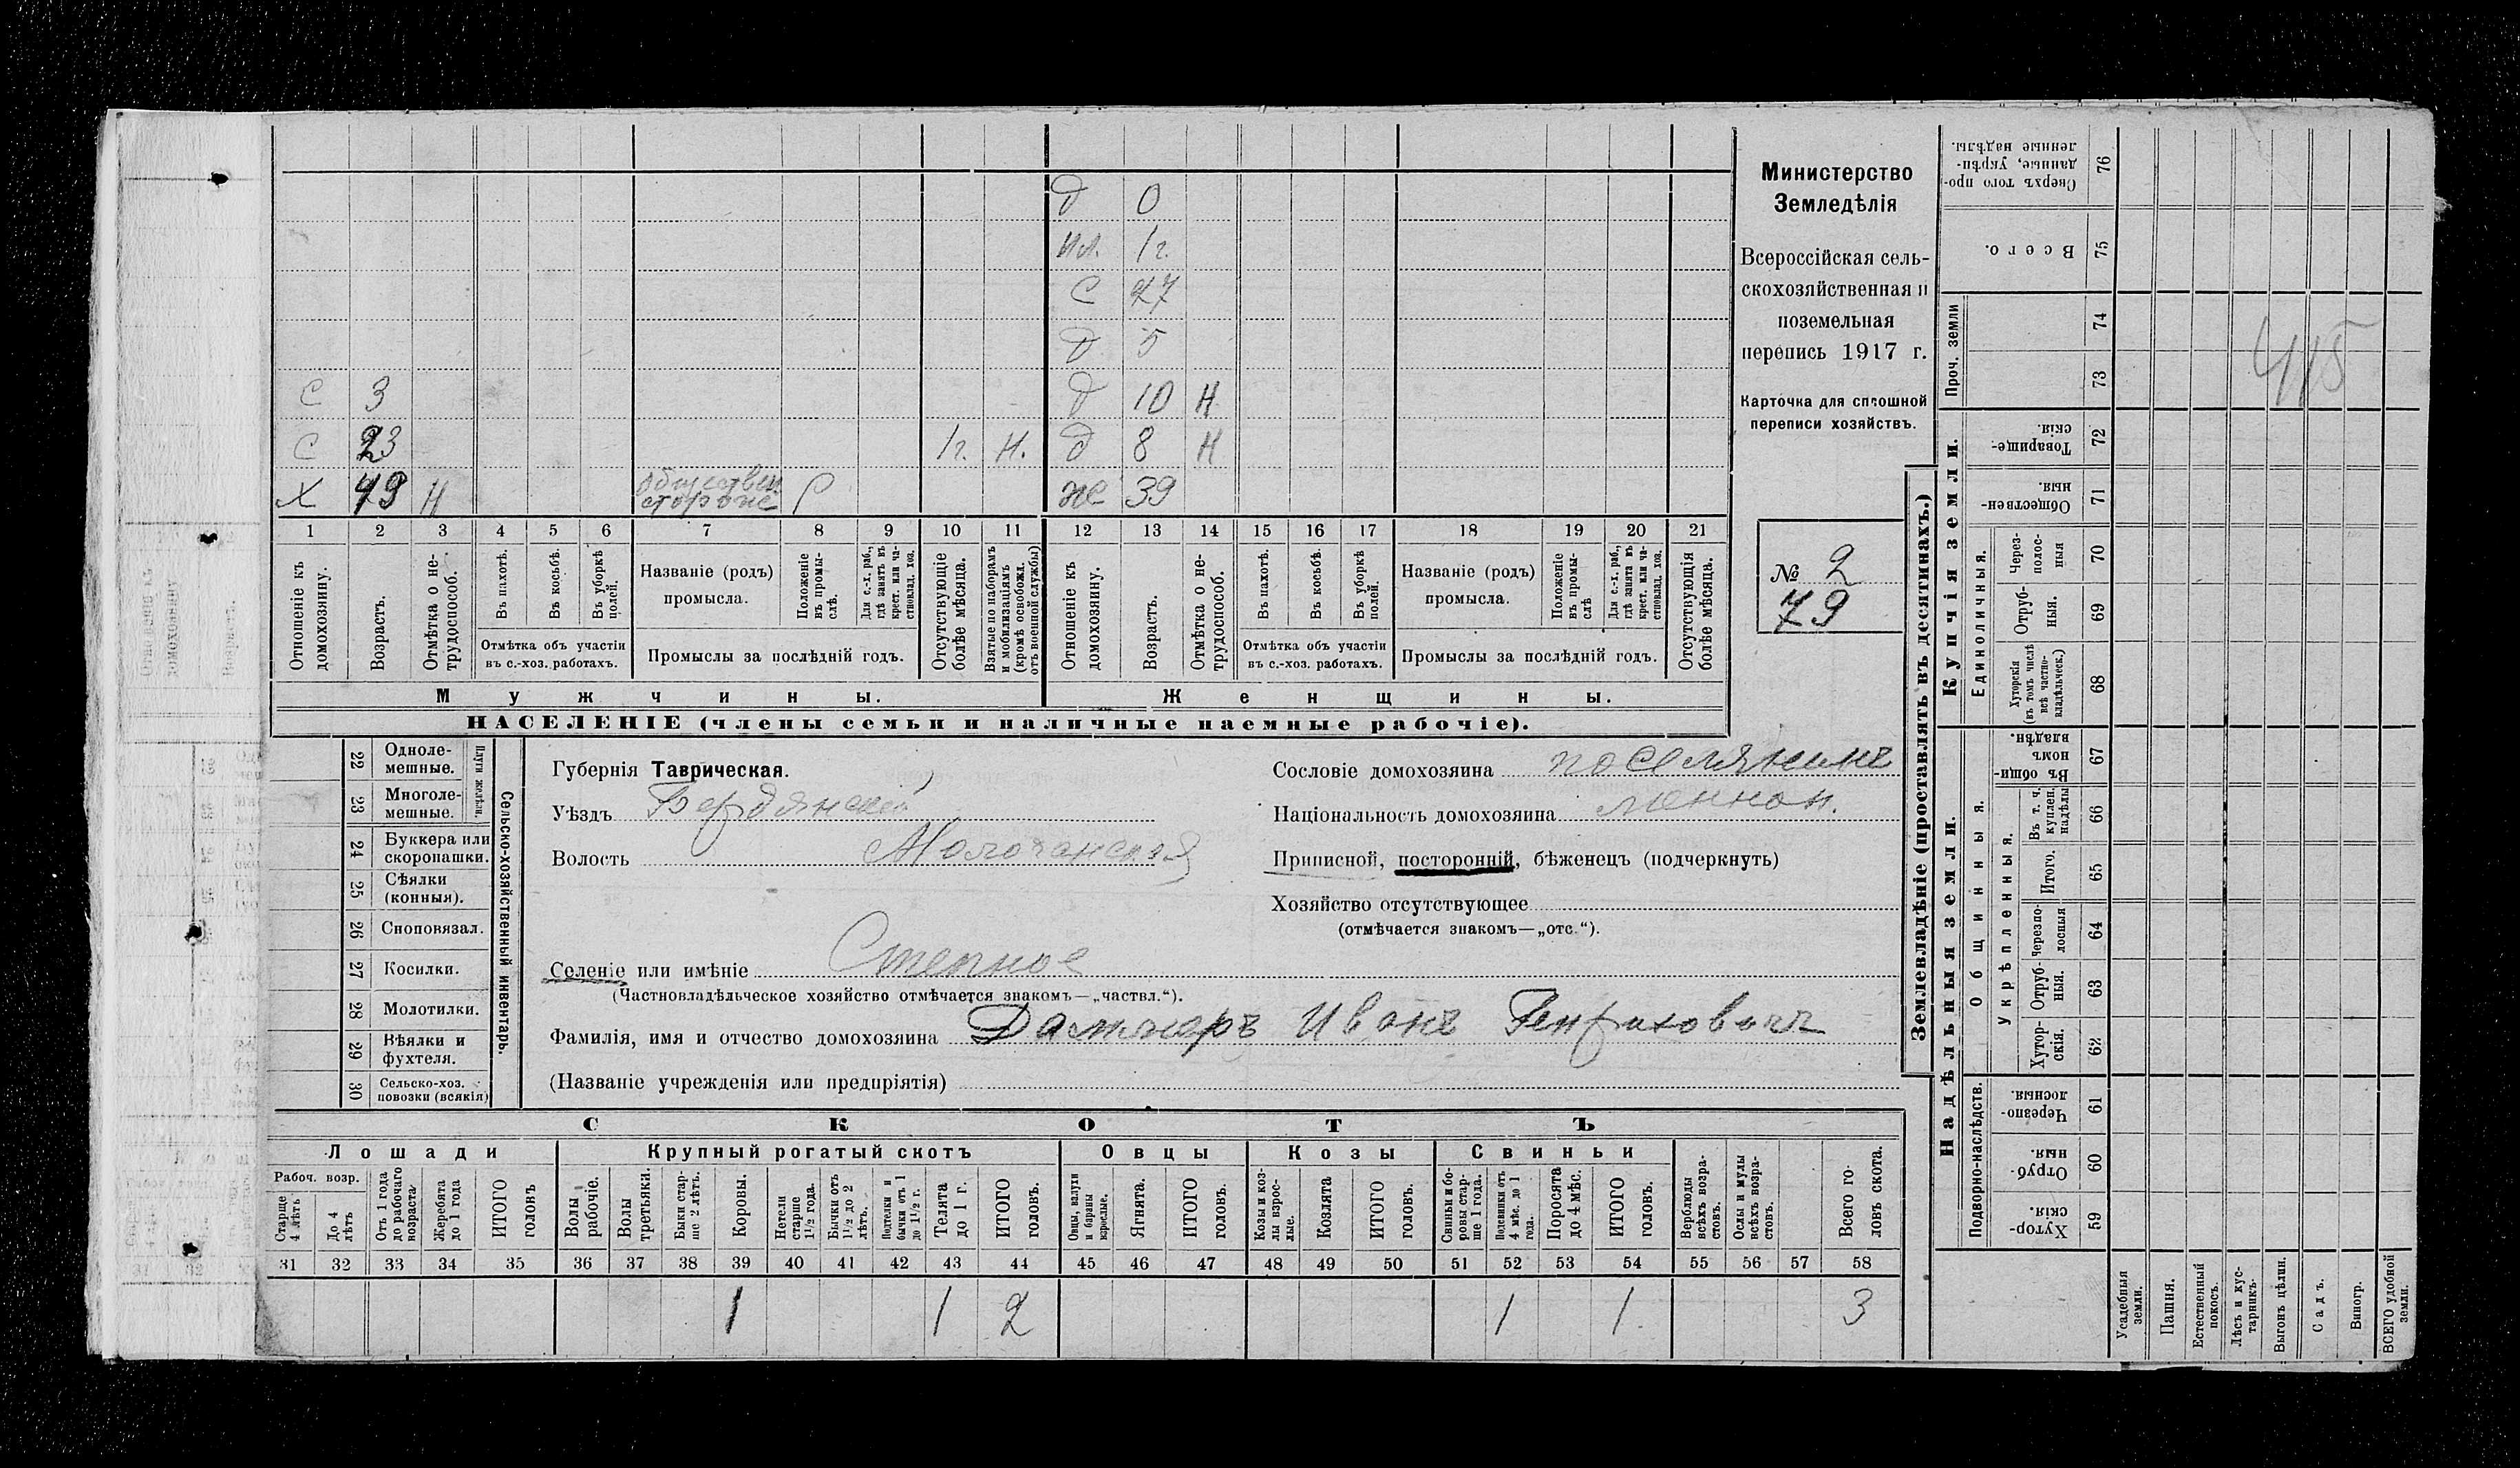 д 0
пл. 1г.
С 27
д 5
С 3 д 10 Н
С 23 1г. Н. д 8 Н
Х 49 Н обществен сторожъ Р же 39
1 2 3 4 5 6 7 8 9 10 11 12 13 14 15 16 17 18 19 20 21
Отношеніе къ домохозяину.
Возрастъ.
Отмѣтка о не-трудоспособ.
Въ пахотѣ.
Въ косьбѣ.
Въ уборкѣ полей.
Отмѣтка объ участіи въ с.-хоз. работахъ.
Названіе (родъ) промысла.
Положеніе въ промы-слѣ.
Для с.-х. раб., гдѣ занятъ въ крест. или ча-стновлад. хоз.
Промыслы за послѣдній годъ.
Отсутствующіе болѣе мѣсяца.
Взятые по наборамъ и мобилизаціямъ (кромѣ освобожд. отъ военной службы)
Отношеніе къ домохозяину.
Возрастъ.
Отмѣтка о не-трудоспособ.
Въ пахотѣ.
Въ косьбѣ.
Въ уборкѣ полей.
Отмѣтка объ участіи въ с.-хоз. работахъ.
Названіе (родъ) промысла.
Положеніе въ промы-слѣ
Для с.-х. раб., гдѣ занята въ крест. или ча-стновлад. хоз.
Промыслы за послѣдній годъ.
Отсутствующія болѣе мѣсяца.
Мужчины. Женщины.
НАСЕЛЕНІЕ (члены семьи и наличные наемные рабочіе).
Министерство
Земледѣлія
Всероссійская сель-
скохозяйственная и
поземельная
перепись 1917 г.
Карточка для сплошной
переписи хозяйствъ.
№ 2
79
22 Одноле-мешные.
23 Многоле-мешные.
Плуги желѣзн.
24 Буккера или скоропашки.
25 Сѣялки (конныя).
26 Сноповязал.
27 Косилки.
28 Молотилки.
29 Вѣялки и фухтеля.
30 Сельско-хоз. повозки (всякія)
Сельско-хозяйственный инвентарь.
Губернія Таврическая.
Уѣздъ Бердянскій
Волость Молочанская
Селеніе или имѣніе Степное
(Частновладѣльческое хозяйство отмѣчается знакомъ—„частвл.“).
Фамилія, имя и отчество домохозяина Дамлеръ Иванъ Генриховичъ
(Названіе учрежденія или предпріятія)
Сословіе домохозяина поселянинъ
Національность домохозяина меннон.
Приписной, посторонній, бѣженецъ (подчеркнуть)
Хозяйство отсутствующее
(отмѣчается знакомъ—„отс.“).
СКОТЪ
Лошади Крупный рогатый скотъ Овцы Козы Свиньи
Рабоч. возр.
Старше 4 лѣтъ
До 4 лѣтъ
Отъ 1 года до рабочаго возраста
Жеребята до 1 года
ИТОГО головъ
Волы рабочіе.
Волы третьяки.
Быки стар-ше 2 лѣтъ.
Коровы.
Нетели старше 1½ года.
Бычки отъ 1½ до 2 лѣтъ.
Подтелки и бычки отъ 1 до 1½ г.
Телята до 1 г.
ИТОГО головъ.
Овцы, валухи и бараны взрослые.
Ягнята.
ИТОГО головъ.
Козы и коз-лы взрос-лые.
Козлята
ИТОГО головъ.
Свиньи и бо-ровы стар-ше 1 года.
Подсвинки отъ 4 мѣс. до 1 года.
Поросята до 4 мѣс.
ИТОГО головъ.
Верблюды всѣхъ возра-стовъ.
Ослы и мулы всѣхъ возра-стовъ.
Всего го-ловъ скота.
31 32 33 34 35 36 37 38 39 40 41 42 43 44 45 46 47 48 49 50 51 52 53 54 55 56 57 58
1 1 2 1 1 3
Землевладѣніе (проставлять въ десятинахъ.)
Сверхъ того про-данные, укрѣп-ленные надѣлы. 76
Всего. 75
Проч. земли 74
73
Купчія земли.
Товарище-скія. 72
Обществен-ныя. 71
Единоличныя.
Через-полос-ныя 70
Отруб-ныя. 69
Хуторскія (въ томъ числѣ всѣ частно-владѣльческ.) 68
Надѣльныя земли.
Общинныя.
Въ общи-номъ владѣн. 67
укрѣпленныя.
Въ т. ч. куплен. надѣлы 66
Итого. 65
Черезпо-лосныя 64
Отруб-ныя. 63
Хутор-скія. 62
Подворно-наслѣдств.
Черезпо-лосныя. 61
Отруб-ныя. 60
Хутор-скія. 59
Усадебныя земли.
Пашня.
Естественный покосъ.
Лѣсъ и кус-тарникъ.
Выгонъ цѣлин.
Садъ.
Виногр.
ВСЕГО удобной земли.
415